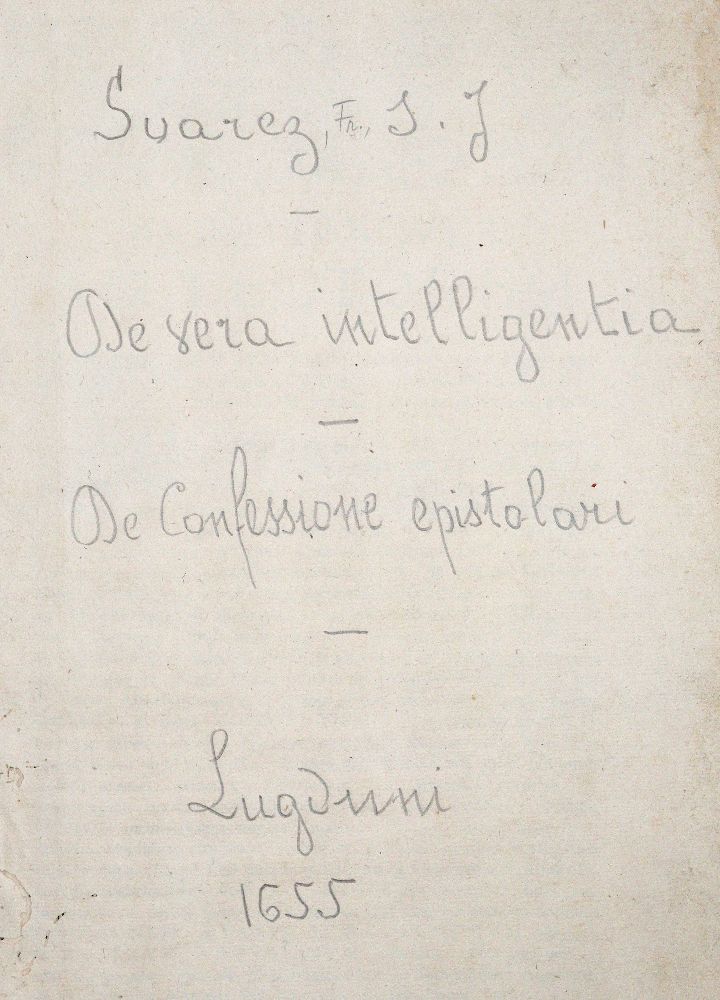 Suarez, Fr., S. J
—
De vera intelligentia
—
De Confessione epistolari
—
Lugduni
1655